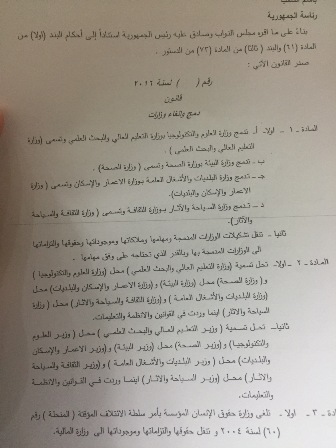 باسم الشعب
رئاسة الجمهورية
بناءً على ما اقره مجلس النواب وصادق عليه رئيس الجمهورية استناداً إلى أحكام البند (أولا) من
المادة (٦١) والبند (ثالثاً) من المادة (٧٣) من الدستور .
صدر القانون الآتي :
رقم ( ) لسنة ٢٠١٦
قانون
دمج والغاء وزارات
المادة - ١ - اولا- أ- تدمج وزارة العلوم والتكنولوجيا بوزارة التعليم العالي والبحث العلمي وتسمى (وزارة
التعليم العالي والبحث العلمي ) .
ب- تدمج وزارة البيئة بوزارة الصحة وتسمى ( وزارة الصحة).
جـ- تدمج وزارة البلديات والأشغال العامة بوزارة الاعمار والإسكان وتسمى ( وزارة
الاعمار والإسكان والبلديات).
د - تدمج وزارة السياحة والآثار بوزارة الثقافة وتسمى ( وزارة الثقافة والسياحة
والآثار).
ثانيا- تنقل تشكيلات الوزارات المندمجة ومهامها وملاكاتها وموجوداتها وحقوقها والتزاماتها
الى الوزارات المندمجة بها وبالقدر الذي تحتاجه على وفق مهامها .
المادة - ٢ - اولا- تحل تسمية (وزارة التعليم العالي والبحث العلمي ) محل (وزارة العلوم والتكنولوجيا )
و ( وزارة الصحة) محل (وزارة البيئة) و (وزارة الاعمار والإسكان والبلديات) محل
(وزارة البلديات والأشغال العامة ) و (وزارة الثقافة والسياحة والاثار) محل ( وزارة
السياحة والاثار) اينما وردت في القوانين والانظمة والتعليمات.
ثانيا- تحل تسمية ( وزير التعليم العالي والبحث العلمي ) محل ( وزير العلوم
والتكنولوجيا) و (وزير الصحة) محل (وزير البيئة) و (وزير الاعمار والإسكان
والبلديات) محل (وزير البلديات والأشغال العامة ) و (وزير الثقافة والسياحة
والاثار) محل (وزير السياحة والاثار) اينما وردت في القوانين والانظمة
والتعليمات.
ادة - ٣ - اولا - تلغى وزارة حقوق الإنسان المؤسسة بأمر سلطة الائتلاف المؤقتة ( المنحلة ) رقم
(٦٠) لسنة ٢٠٠٤ و تنقل حقوقها والتزاماتها وموجوداتها الى وزارة المالية.